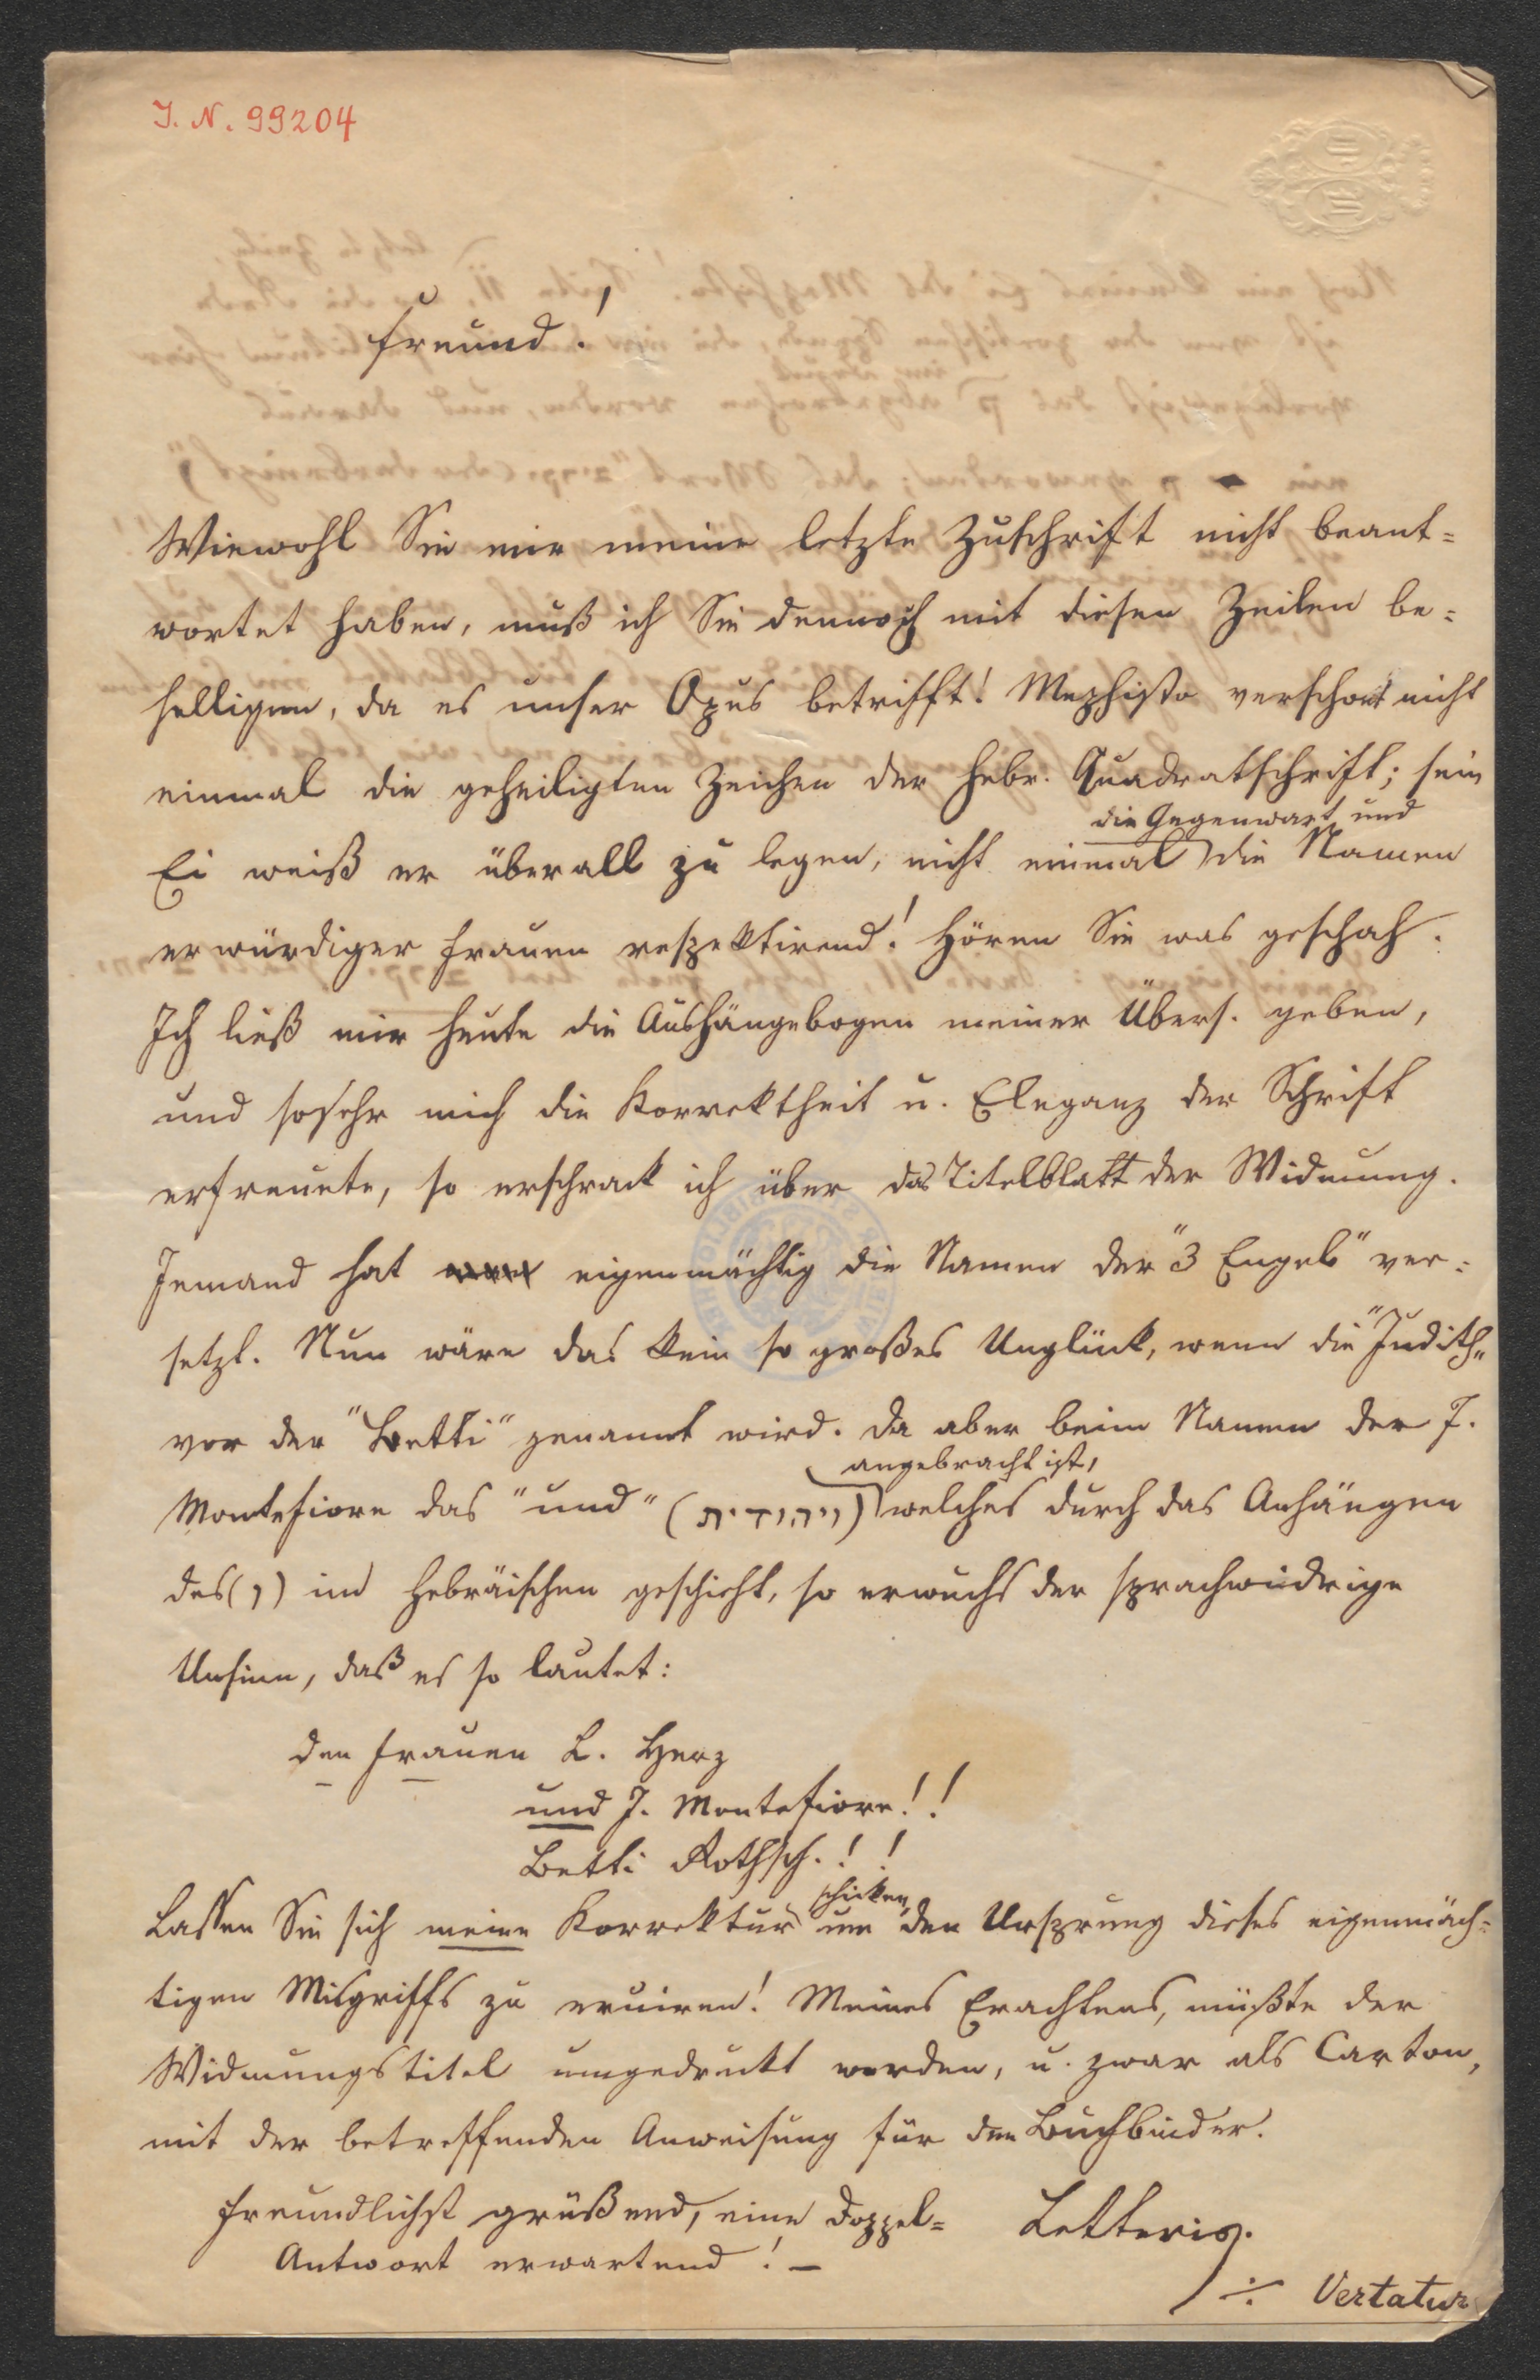 I. N. 99204
Freund!
Wiewohl Sie mir meine letzte Zuschrift nicht beant=
wortet haben, muß ich Sie dennoch mit diesen Zeilen be=
helligen, da es unser Opus betrifft! Mephisto verschont nicht
einmal die geheiligten Zeichen der hebr. Quadratschrift; sein
die Gegenwart und
Ei weiß er überall zu legen, nicht einmal die Namen
erwürdiger Frauen respektirend! Hören Sie was geschah.
Ich ließ mir heute die Aushängebogen meiner Übers. geben,
und sosehr mich die Korrektheit u. Eleganz der Schrift
erfreuete, so erschrack ich über das Titelblatt der Widmung.
Jemand hat eigenmächtig die Namen der "3 Engel" ver=
setzt. Nun wäre das kein so großes Unglück, wenn die "Judith"
vor der "Betti" genannt wird. Da aber beim Namen der J.
angebracht ist,
Montefiore das "und" (ויהודית) welches durch das Anhängen
des (ו) im Hebräischen geschieht, so erwuchs der sprachwidrige
Unsinn, daß es so lautet:
den Frauen L. Herz
und J. Montefiore!!
Betti Rothsch.!!
schicken
Lassen Sie sich meine Korrektur um den Ursprung dieses eigenmäch=
tigen Misgriffs zu eruiren! Meines Erachtens, müßte der
Widmungstitel umgedruckt werden, u. zwar als Carton,
mit der betreffenden Anweisung für den Buchbinder.
Freundlichst grüßend, eine Doppel= Letteris.
Antwort erwartend! –
÷ Vertatur